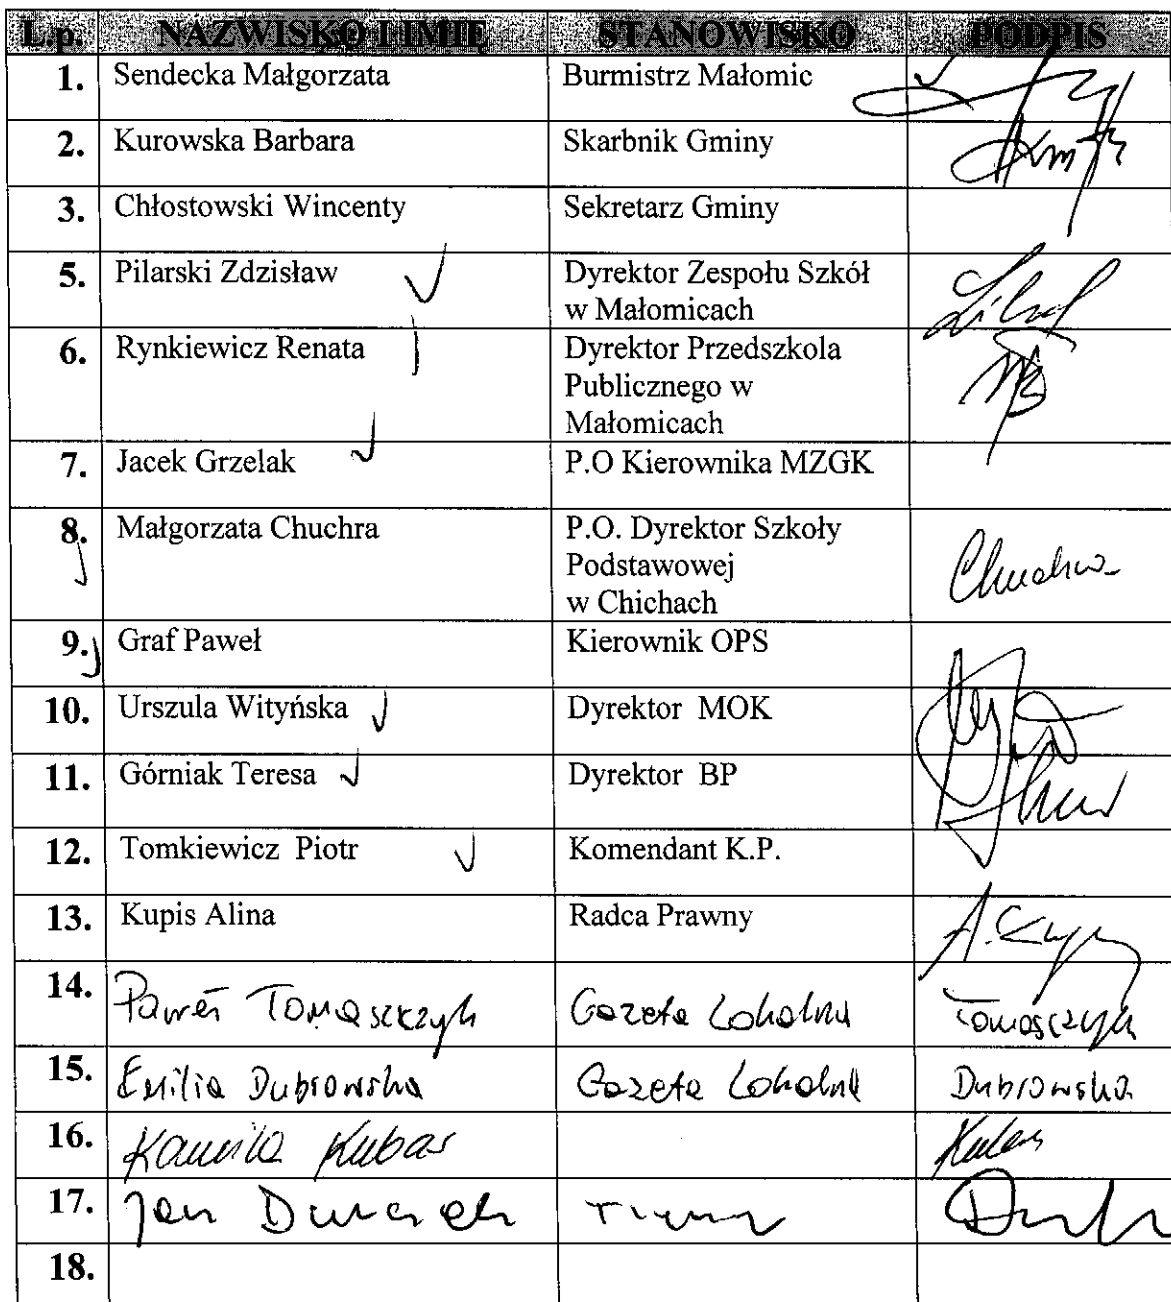 L.p. NAZWISKO I IMIĘ STANOWISKO PODPIS
1. Sendecka Małgorzata Burmistrz Małomic
2. Kurowska Barbara Skarbnik Gminy
3. Chłostowski Wincenty Sekretarz Gminy
5. Pilarski Zdzisław Dyrektor Zespołu Szkół
w Małomicach
6. Rynkiewicz Renata Dyrektor Przedszkola
Publicznego w
Małomicach
7. Jacek Grzelak P.O Kierownika MZGK
8. Małgorzata Chuchra P.O. Dyrektor Szkoły
Podstawowej
w Chichach
Chuchra
9. Graf Paweł Kierownik OPS
10. Urszula Wityńska Dyrektor MOK
11. Górniak Teresa Dyrektor BP
12. Tomkiewicz Piotr Komendant K.P.
13. Kupis Alina Radca Prawny
14. Paweł Tomaszczyk Gazeta Lokalna Tomaszczyk
15. Emilia Dubrowska Gazeta Lokalna Dubrowska
16. Kamila Kubas
17. Jan
18.